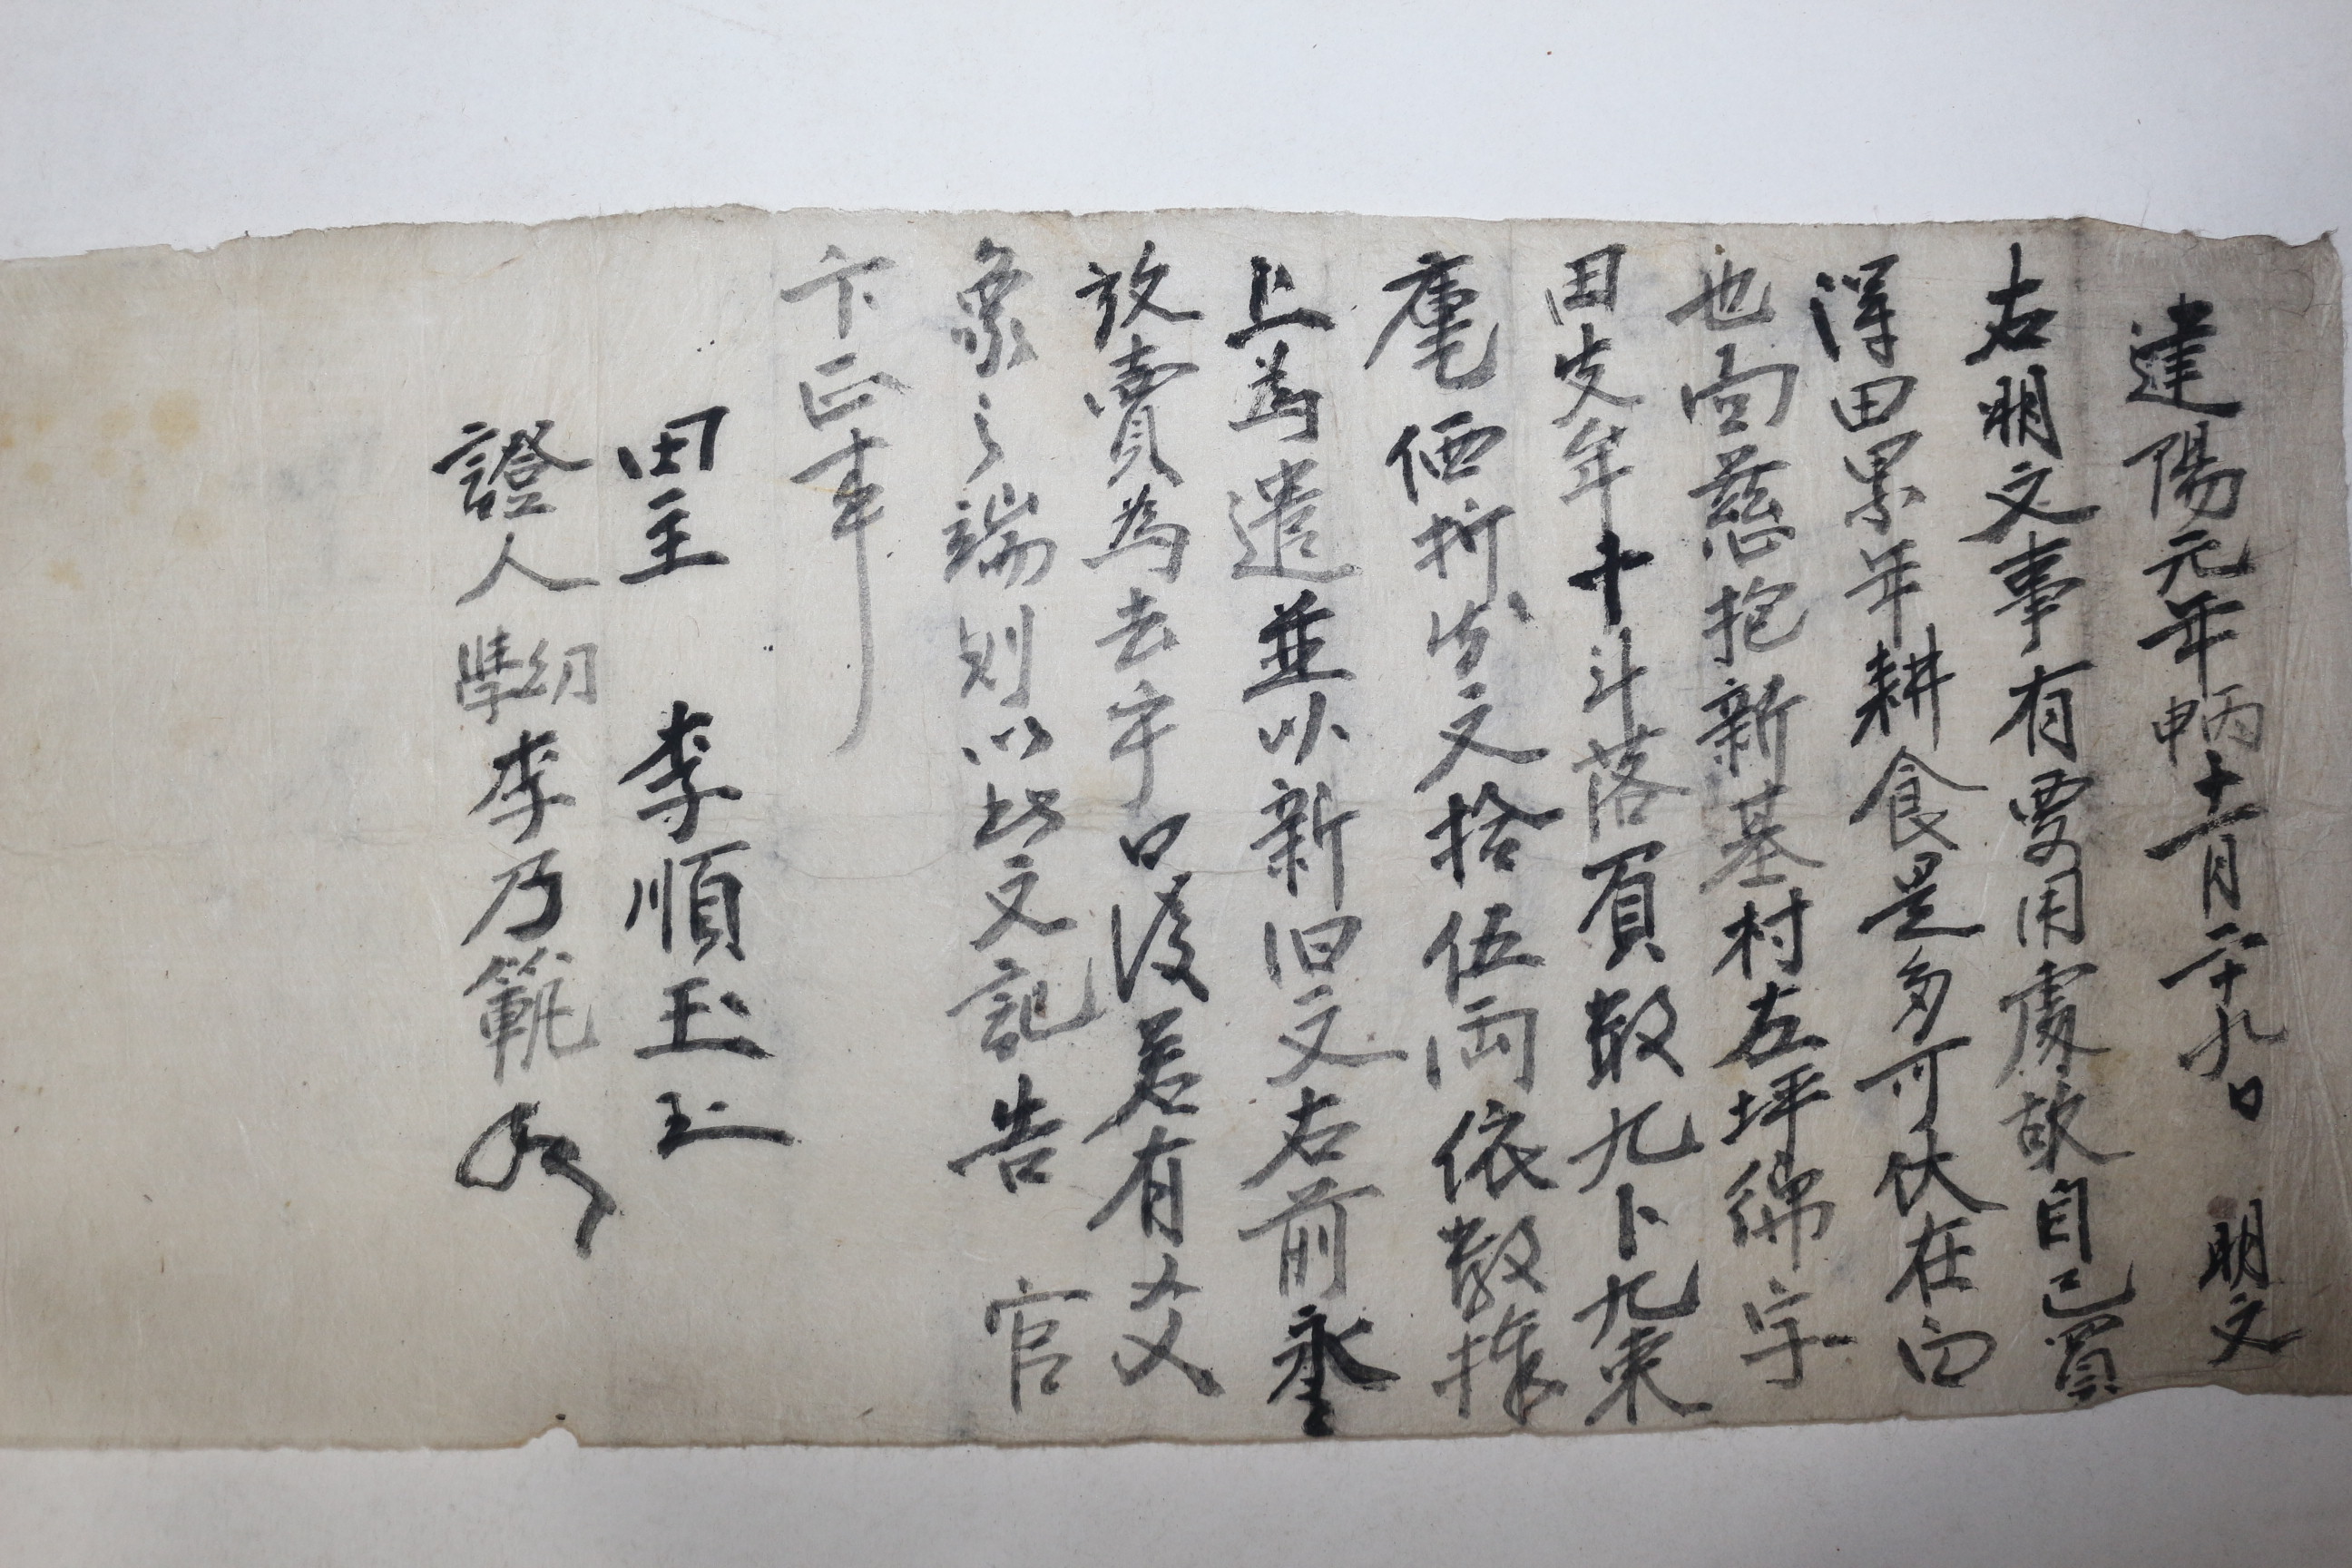 達陽元年丙申十一月二十九日 明文
右明文事有要用處故自己買
得田累年耕食是多可伏在向
也向慈抱新基村左坪綿字
田支年十斗落頁數九卜九束
庫価折錢文拾伍兩依數捧
上為遣並以新旧文右前永
放賣為去乎日後若有爻
象之端則以此文記告 官
卞正事
田主 李順玉
證人幼學李乃範